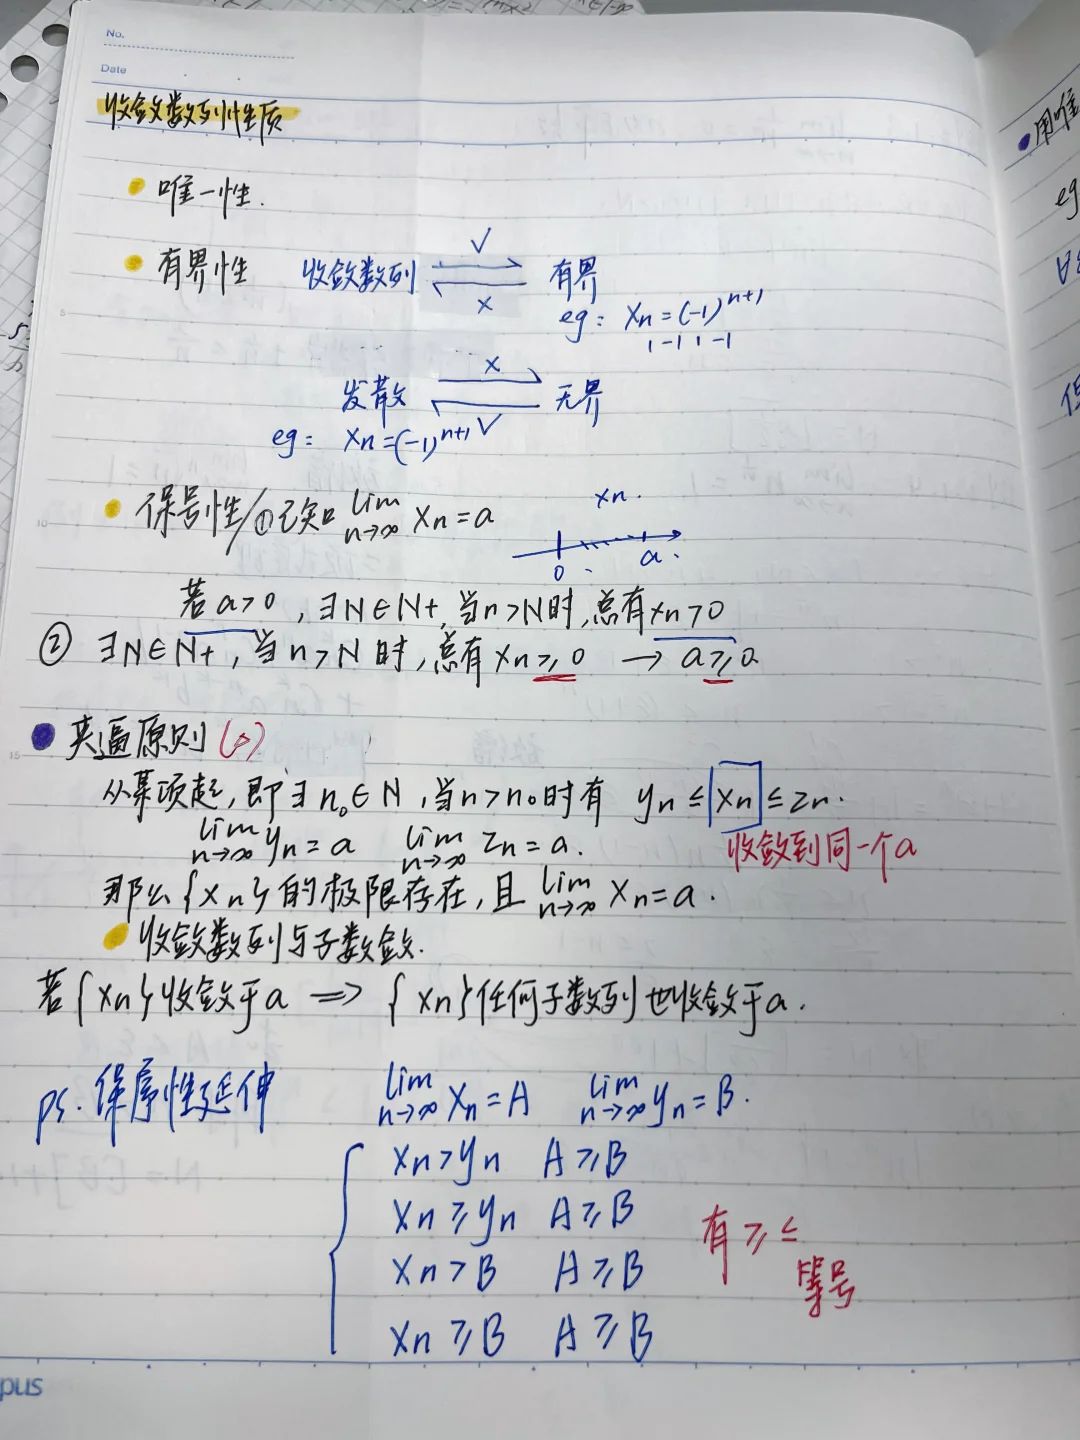 No.
Date
收敛数列性质
唯一性.
有界性 收敛数列 √ × 有界
eg: Xn=(-1)^{n+1}
1 -1 1 -1
发散 × √ 无界
eg: Xn=(-1)^{n+1}
保号性/①已知 lim n→∞ Xn=a
xn.
0 a.
若a>0, ∃N∈N+, 当n>N时, 总有xn>0
② ∃N∈N+, 当n>N时, 总有xn≥0 → a≥0
夹逼原则
从某项起, 即∃n₀∈N, 当n>n₀时有 yn≤Xn≤zn.
lim n→∞ yn=a lim n→∞ zn=a.
收敛到同一个a
那么{Xn}的极限存在, 且 lim n→∞ Xn=a.
收敛数列与子数敛.
若{Xn}收敛于a ⇒ {Xn}任何子数列也收敛于a.
ps. 保序性延伸 lim n→∞ Xn=A lim n→∞ yn=B.
Xn>yn A≥B
Xn≥yn A≥B
Xn>B A≥B
Xn≥B A≥B
有≥≤
等号
pus
用唯
eg